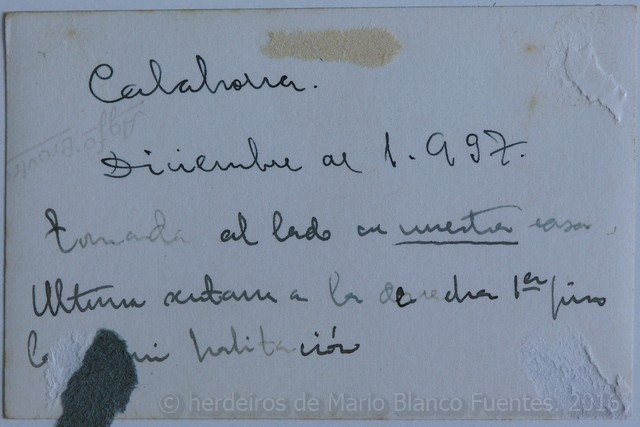 Calahorra.
Agfa-Brovira
Diciembre de 1.937.
tomada al lado de nuestra casa,
Ultima ventana a la derecha 1er piso
la mi habitación
© herdeiros de Mario Blanco Fuentes. 2016